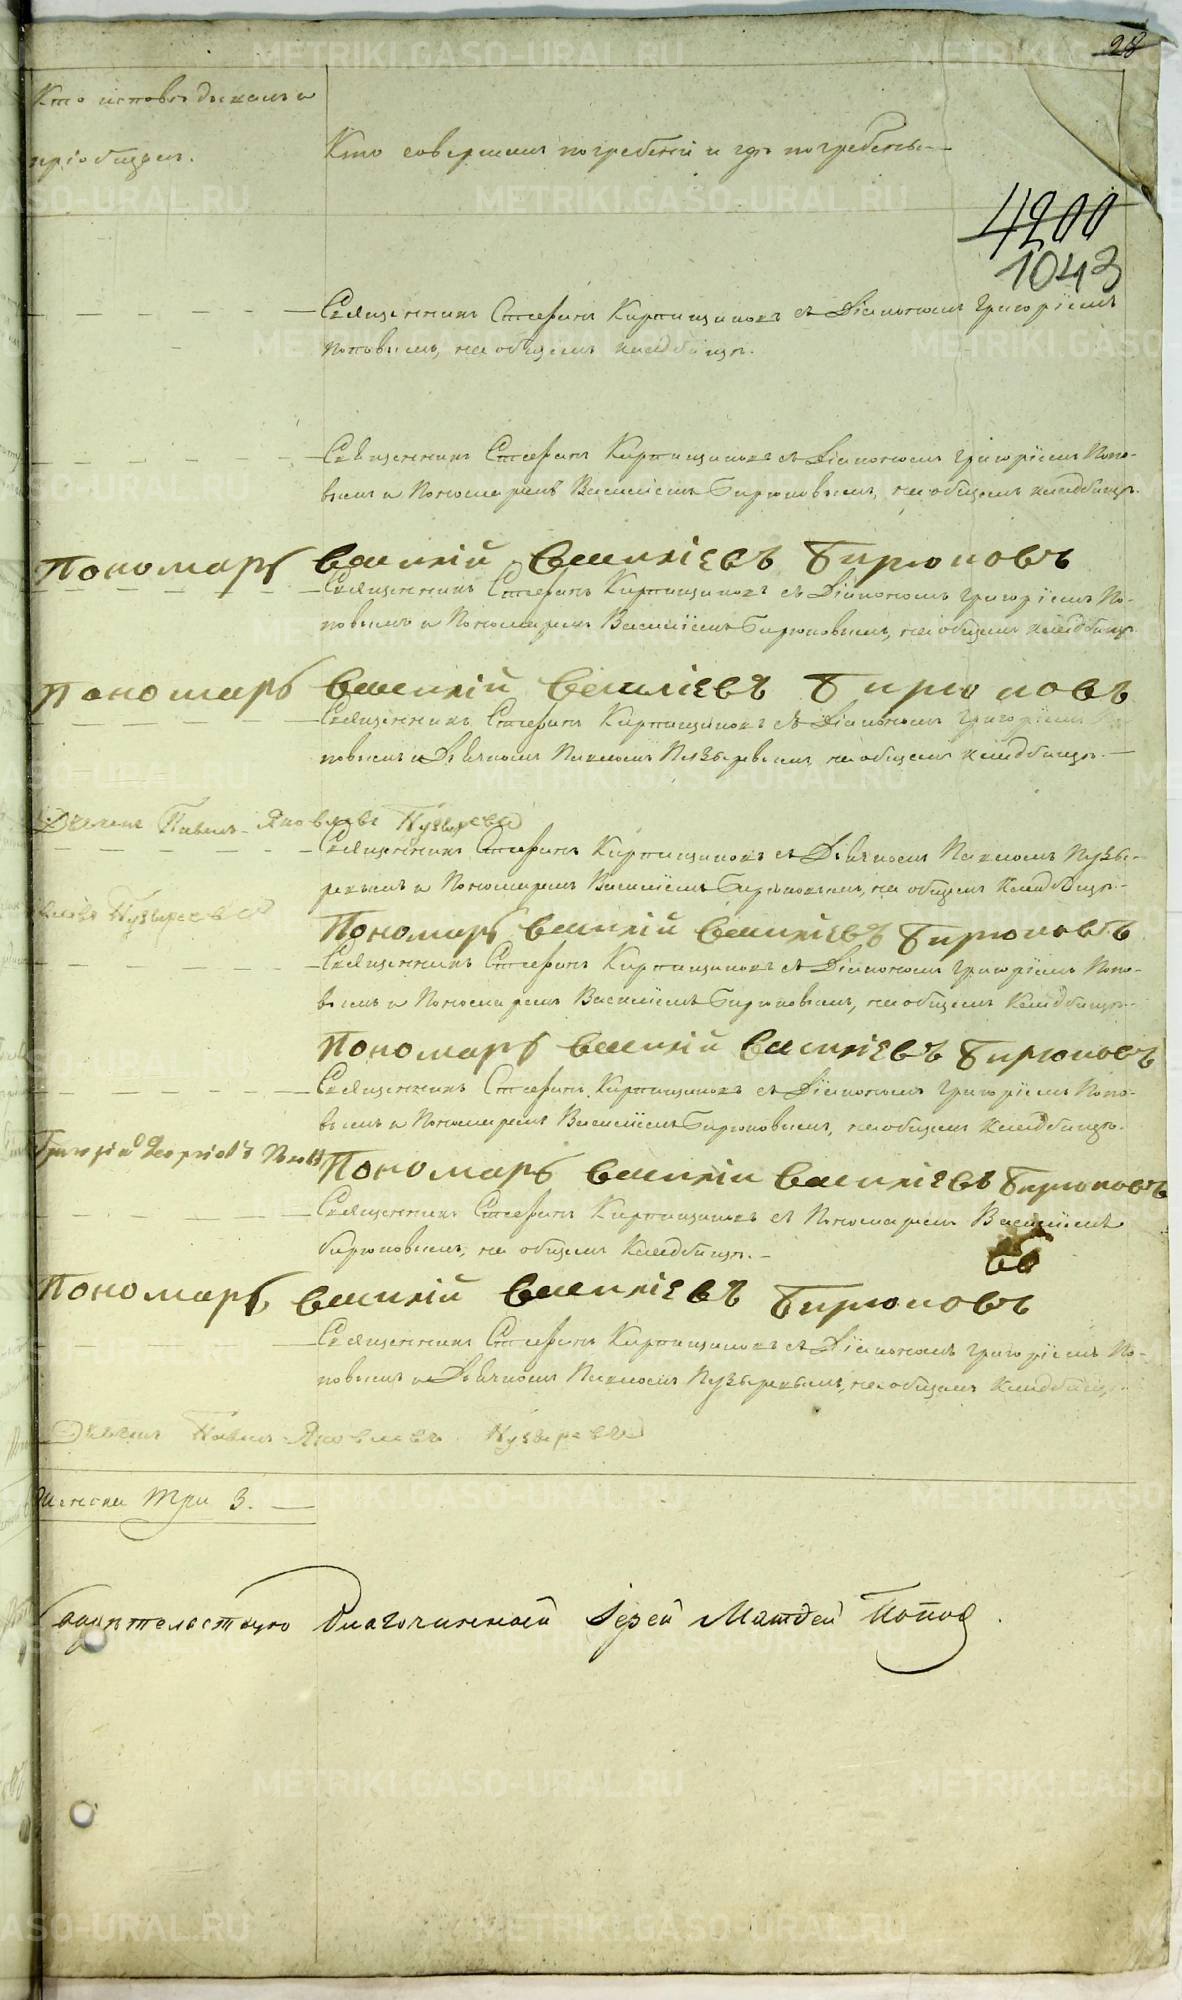 28
Кто исповѣдывалъ и
пріобщалъ.
Кто совершалъ погребеніе и гдѣ погребены.
4200
1043
Священникъ Стефанъ Кирпищиковъ съ Діакономъ Григоріемъ
Поповымъ, на общемъ кладбищѣ.
Священникъ Стефанъ Кирпищиковъ съ Діакономъ Григоріемъ Попо-
вымъ и Пономаремъ Василіемъ Бирюковымъ, на общемъ кладбищѣ.
Пономарь Василій Василіевъ Бирюковъ
Священникъ Стефанъ Кирпищиковъ съ Діакономъ Григоріемъ По-
повымъ и Пономаремъ Василіемъ Бирюковымъ, на общемъ кладбищѣ
Пономарь Василій Василіевъ Бирюковъ
Священникъ Стефанъ Кирпищиковъ съ Діакономъ Григоріемъ По-
повымъ и Дьячкомъ Павломъ Пузыревымъ, на общемъ кладбищѣ.
Дьячекъ Павелъ Яковлевъ Пузыревъ
Священникъ Стефанъ Кирпищиковъ съ Дьячкомъ Павломъ Пузы-
ревымъ и Пономаремъ Василіемъ Бирюковымъ, на общемъ кладбищѣ.
Пузыревъ
Пономарь Василій Василіевъ Бирюковъ
Священникъ Стефанъ Кирпищиковъ съ Діакономъ Григоріемъ Попо-
вымъ и Пономаремъ Василіемъ Бирюковымъ, на общемъ кладбищѣ.
Пономарь Василій Василіевъ Бирюковъ
Священникъ Стефанъ Кирпищиковъ съ Діакономъ Григоріемъ Попо-
вымъ и Пономаремъ Василіемъ Бирюковымъ, на общемъ кладбищѣ.
Григорій Георгіевъ Поповъ
Пономарь Василій Василіевъ Бирюковъ
Священникъ Стефанъ Кирпищиковъ съ Пономаремъ Василіемъ
Бирюковымъ, на общемъ кладбищѣ.
Пономарь Василій Василіевъ Бирюковъ
Священникъ Стефанъ Кирпищиковъ съ Діакономъ Григоріемъ По-
повымъ и Дьячкомъ Павломъ Пузыревымъ, на общемъ кладбищѣ.
Дьячекъ Павелъ Яковлевъ Пузыревъ
Женска три 3.
Свидѣтельствую Благочинной Іерей Матвей Попов.
METRIKI.GASO-URAL.RU